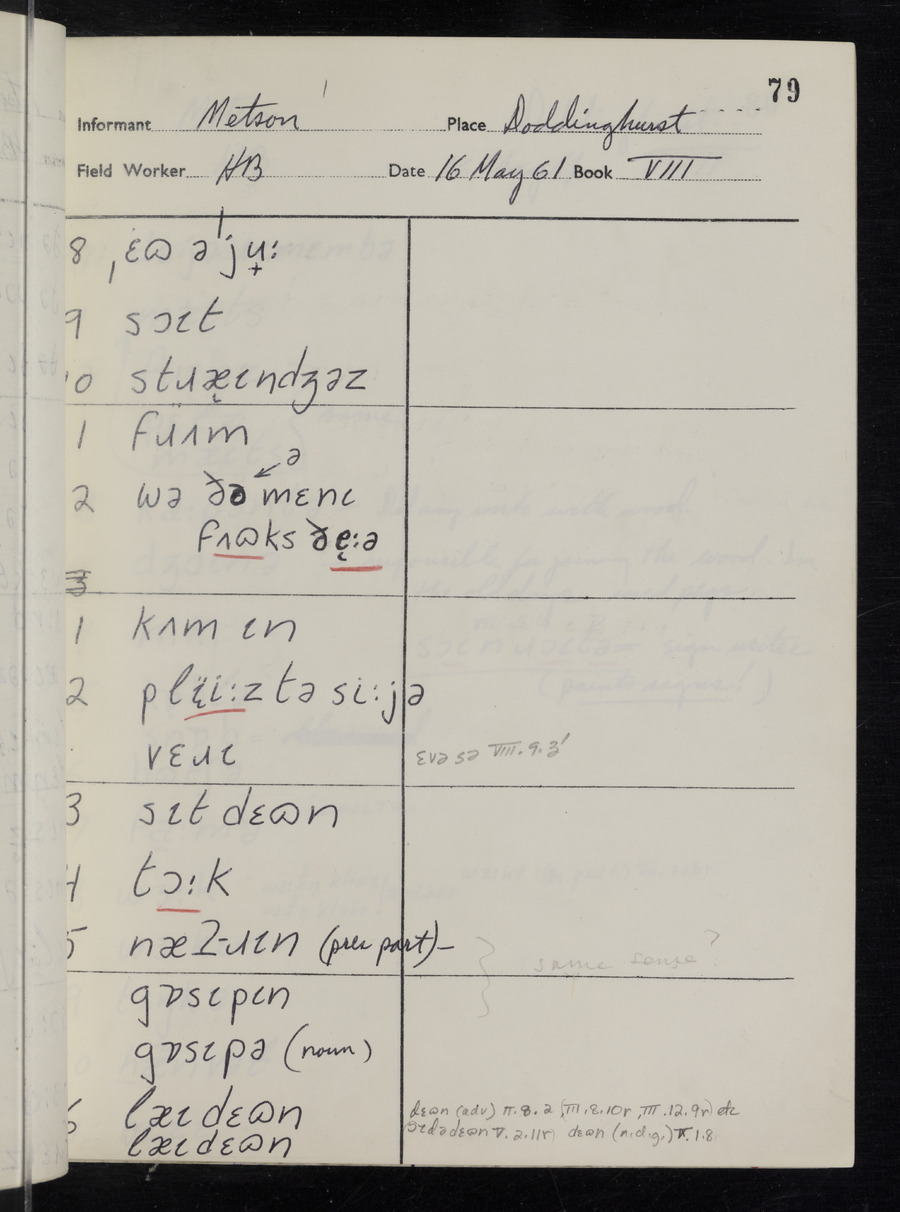 79
Informant Metson Place Doddinghurst
Field Worker HB Date 16 May 61 Book VIII
8 ˌɛɷ əˈjụ̟ː
9 sɔɪt
10 stɹæ̨ɪndʒəz
1 fɹʌm
2 wə ðə mɛnɪ
ə
fʌɷks ðę:ə
3
1 kʌm ɪn
2 plɪ̈i:z tə si:jə
vɛɹɪ
ɛvə sə VIII.9.3ʳ
3 sɪt dɛɷn
4 tɔ:k
5 næʔ-ɹɪn (pres part)–
same sense?
gɒsɪpɪn
gɒsɪpə (noun)
6 læɪ dɛɷn
læɪdɛɷn
dɛɷn (adv) II.8.2 (III.2.10r, III.12.9r) etc
V.2.11r) dɛɷn (n.d.g.) II.1.8